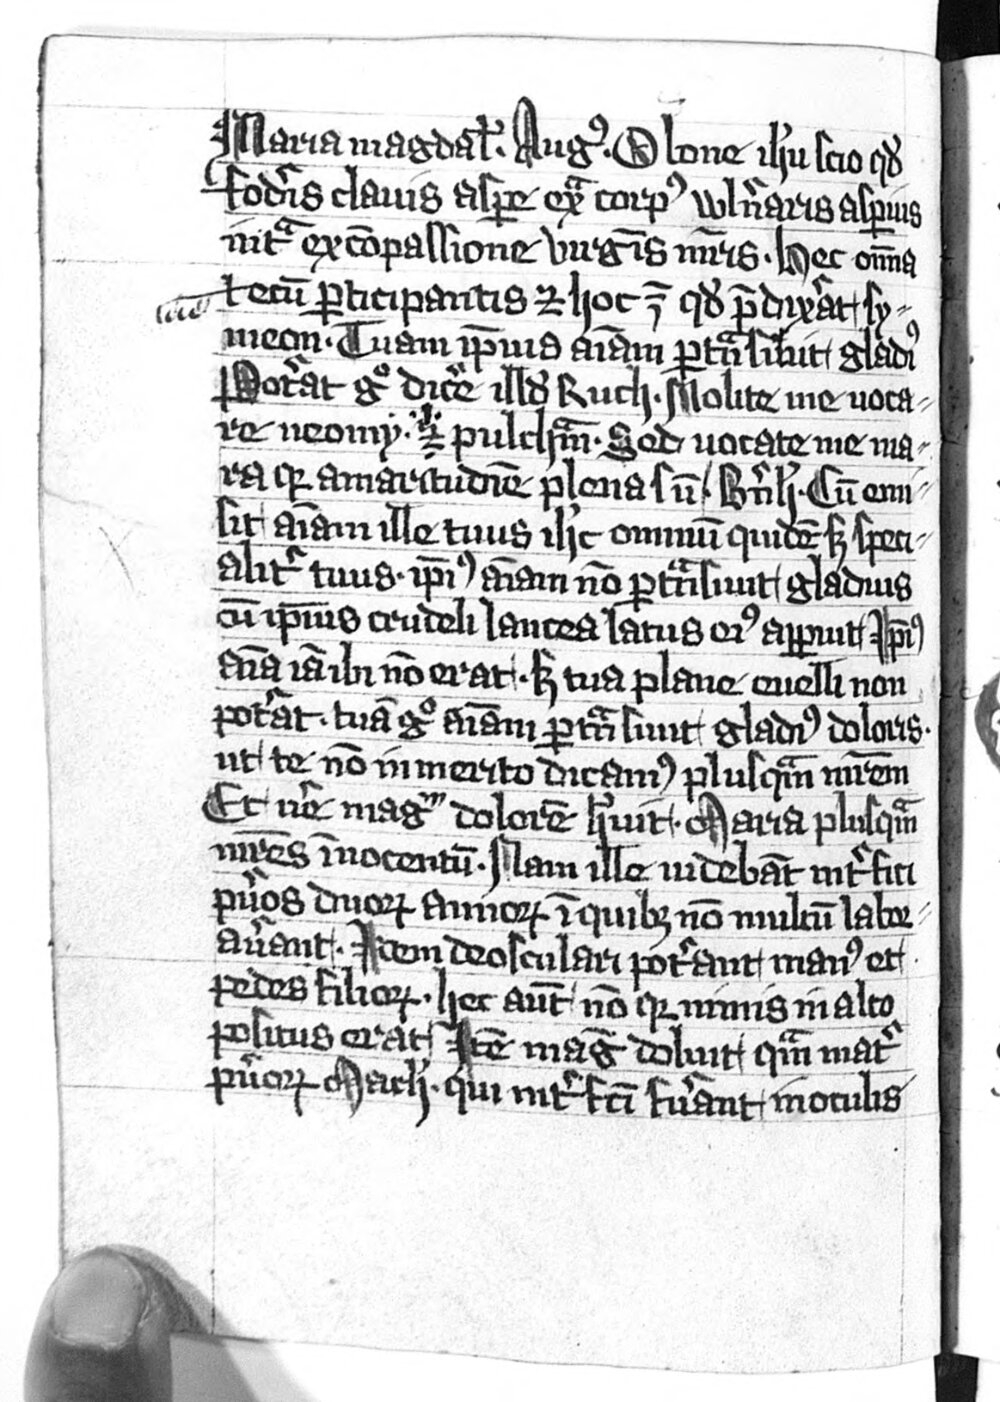 Maria magdaɫ. Augꝰ. O bone ih̄u scio qd̄
fodēis clauis aspe ext̄ corpꝰ wln̄aris asperius
int̄ ex cōpassione virgīs mr̄is. hec om̄a
tecū ꝑticipantis ⁊ hoc ē qd̄ p̄dixāt sy-
meon. Tuam ip̄ius aīam ꝑtn̄sibit gladiꝰ
Potāt gͦ dicē illd̄ Ruth. Nolite me uoca-
re neomy. .i. pulchᵃm. Sed uocate me ma-
ra qr amaritudīe plena sū. Bn̄h. Cū emi-
sit aīam ille tuus ih̄c omniū quidē sꝫ speci-
alit̄ tuus. ip̄iꝰ aīam nō ꝑtn̄siuit gladius
cū ip̄ius crudeli lancea latus eiꝰ apꝑuit Ip̄iꝰ
aīa iā ibi nō erat. sꝫ tua plane euelli non
potāt. tuā gͦ aīam ꝑtn̄siuit gladiꝰ doloris.
ut te nō inmerito dicamꝰ plusqᵃm mr̄em
Et uē magᵐ dolorē h̄uit. Maria plusqᵃm
mr̄es īnocentū. Nam ille uidebāt int̄fici
pūos duoꝝ annoꝝ ī quibꝫ nō multū labor-
auānt. Item deosculari potānt manꝰ et
pedes filioꝝ. hec aūt nō qr nimis in alto
positus erat Itē maḡ doluit qᵃm mat̄
pūoꝝ Mach. qui int̄fc̄i fuānt in oculis